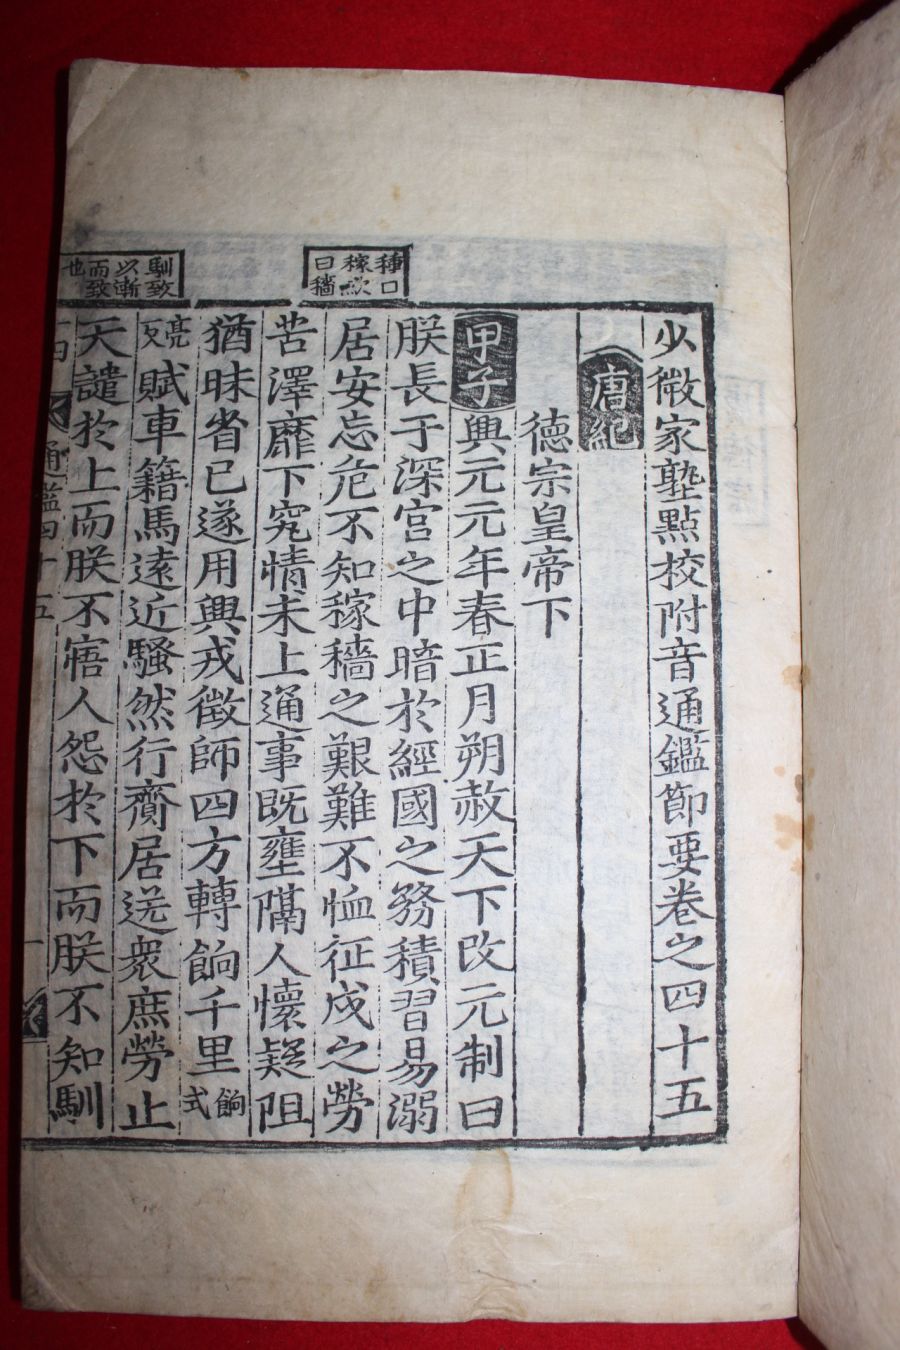 種曰
稼斂
曰穡
馴致
以漸
而致
也
少微家塾點校附音通鑑節要卷之四十五
唐紀
德宗皇帝下
甲子興元元年春正月朔赦天下改元制曰
朕長于深宮之中暗於經國之務積習易溺
居安忘危不知稼穡之艱難不恤征戍之勞
苦澤靡下究情未上通事既壅隔人懷疑阻
猶昧省己遂用興戎徵師四方轉餉千里餉式
亮反賦車籍馬遠近騷然行齎居送衆庶勞止
天譴於上而朕不寤人怨於下而朕不知馴
通鑑四十五 一